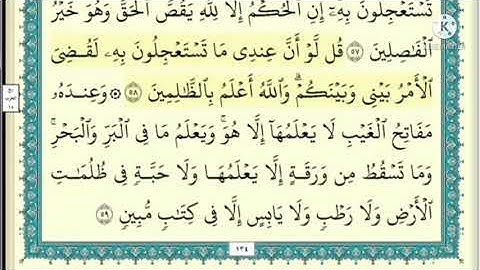 تَسْتَعْجِلُونَ بِهِۦٓ ۚ إِنِ ٱلْحُكْمُ إِلَّا لِلَّهِ ۖ يَقُصُّ ٱلْحَقَّ ۖ وَهُوَ خَيْرُ
ٱلْفَٰصِلِينَ ٥٧ قُل لَّوْ أَنَّ عِندِى مَا تَسْتَعْجِلُونَ بِهِۦ لَقُضِىَ
ٱلْأَمْرُ بَيْنِى وَبَيْنَكُمْ ۗ وَٱللَّهُ أَعْلَمُ بِٱلظَّٰلِمِينَ ٥٨ ۞ وَعِندَهُۥ
مَفَاتِحُ ٱلْغَيْبِ لَا يَعْلَمُهَآ إِلَّا هُوَ ۚ وَيَعْلَمُ مَا فِى ٱلْبَرِّ وَٱلْبَحْرِ ۚ
وَمَا تَسْقُطُ مِن وَرَقَةٍ إِلَّا يَعْلَمُهَا وَلَا حَبَّةٍ فِى ظُلُمَٰتِ
ٱلْأَرْضِ وَلَا رَطْبٍ وَلَا يَابِسٍ إِلَّا فِى كِتَٰبٍ مُّبِينٍ ٥٩
١٣٤